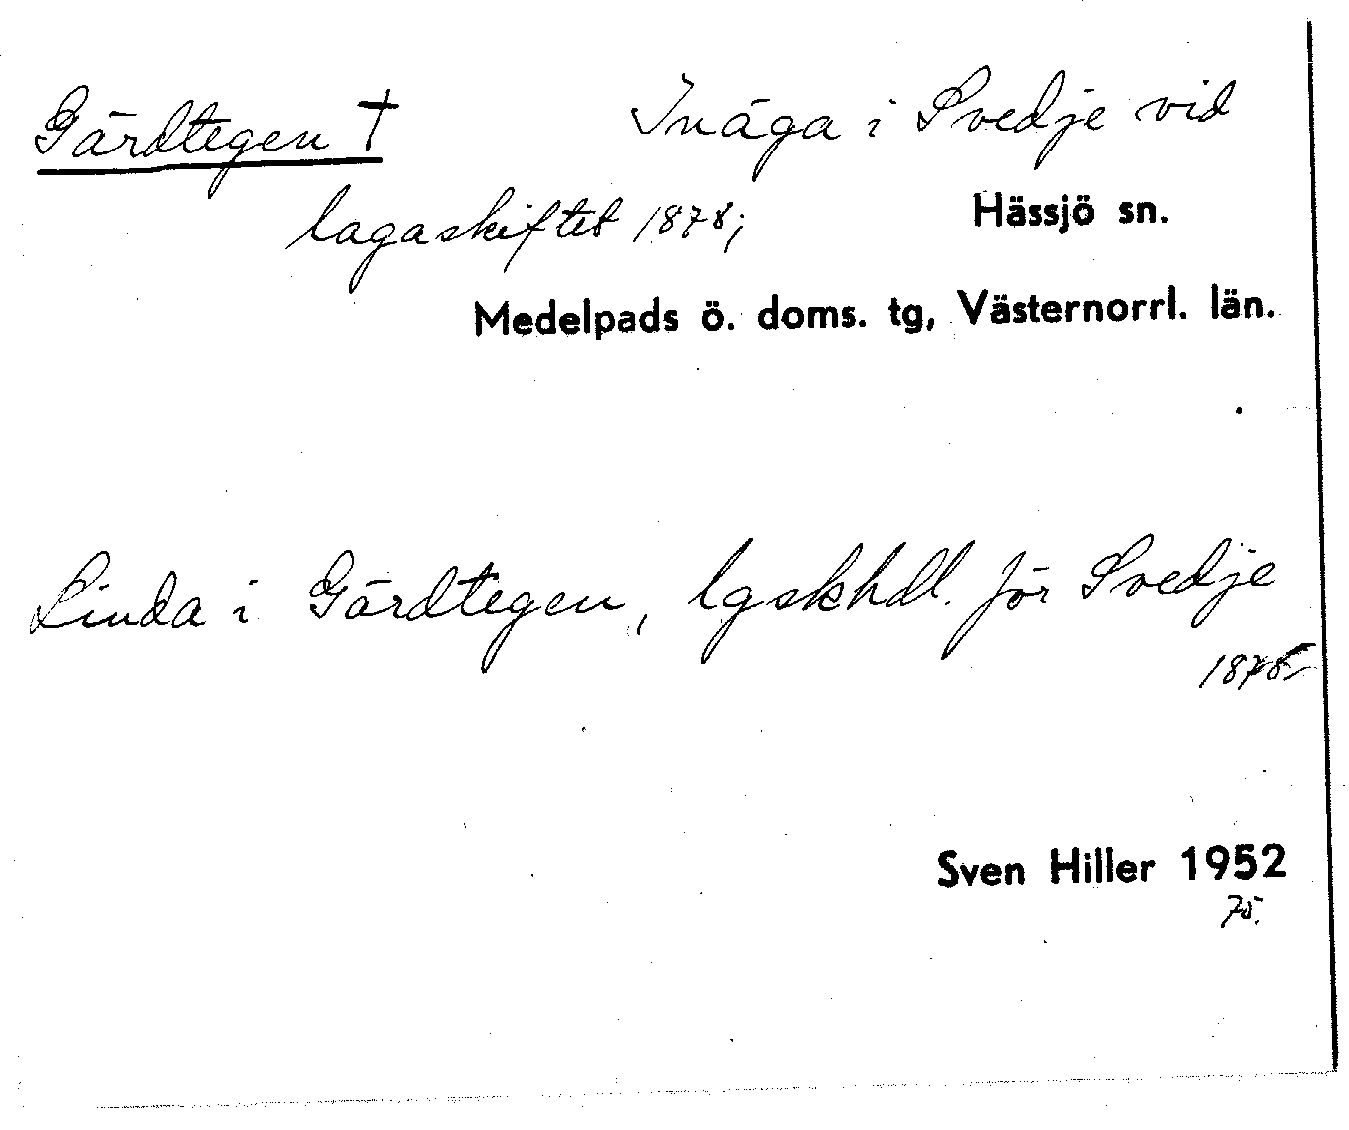 Gärdtegen † Inäga i Svedje vid
lagaskiftet 1878;
Hässjö sn.
Medelpads ö. doms. tg, Västernorrl. län.
Linda i Gärdtegen, lgskhdl. för Svedje
1878
Sven Hiller 1952
75.